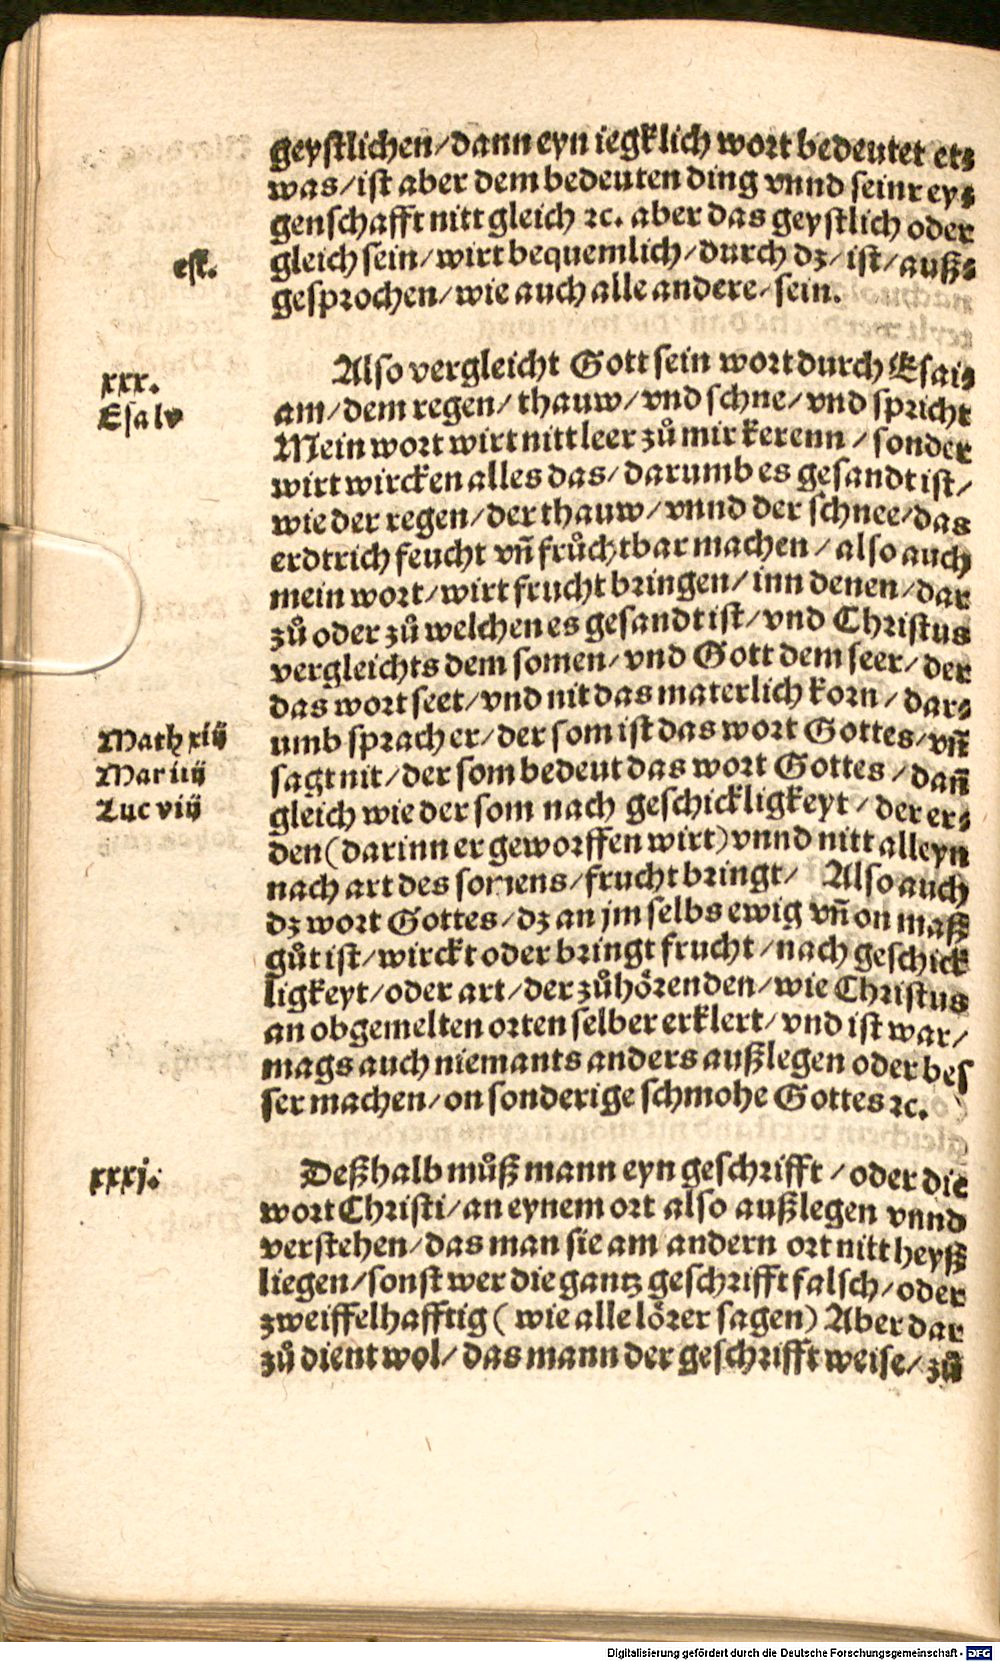 geystlichen/dann eyn iegklich wort bedeutet et⸗
was/ist aber dem bedeuten ding vnnd seinr ey⸗
genschafft nitt gleich ꝛc. aber das geystlich oder
est.
gleich sein/wirt bequemlich/durch dz/ist/auß⸗
gesprochen/wie auch alle andere/sein.
xxx.
Also vergleicht Gott sein wort durch Esai⸗
Esa lv
am/dem regen/thauw/vnd schne/vnd spricht
Mein wort wirt nitt leer zů mir kerenn/sonder
wirt wircken alles das/darumb es gesandt ist/
wie der regen/der thauw/vnnd der schnee/das
erdtrich feucht vñ frůchtbar machen/also auch
mein wort/wirt frucht bringen/inn denen/dar
zů oder zů welchen es gesandt ist/vnd Christus
vergleichts dem somen/vnd Gott dem seer/der
das wort seet/vnd nit das materlich korn/dar⸗
Math xiij
umb sprach er/der som ist das wort Gottes/vñ
Mar iiij
sagt nit/der som bedeut das wort Gottes/dañ
Luc viij
gleich wie der som nach geschickligkeyt/der er⸗
den(darinn er geworffen wirt)vnnd nitt alleyn
nach art des somens/frucht bringt/ Also auch
dz wort Gottes/dz an jm selbs ewig vñ on maß
gůt ist/wirckt oder bringt frucht/nach geschick
ligkeyt/oder art/der zůhörenden/wie Christus
an obgemelten orten selber erklert/vnd ist war/
mags auch niemants anders außlegen oder bes
ser machen/on sonderige schmohe Gottes ꝛc.
xxxj.
Deßhalb můß mann eyn geschrifft/oder die
wort Christi/an eynem ort also außlegen vnnd
verstehen/das man sie am andern ort nitt heyß
liegen/sonst wer die gantz geschrifft falsch/oder
zweiffelhafftig(wie alle lörer sagen) Aber dar
zů dient wol/das mann der geschrifft weise/zů
Digitalisierung gefördert durch die Deutsche Forschungsgemeinschaft - DFG